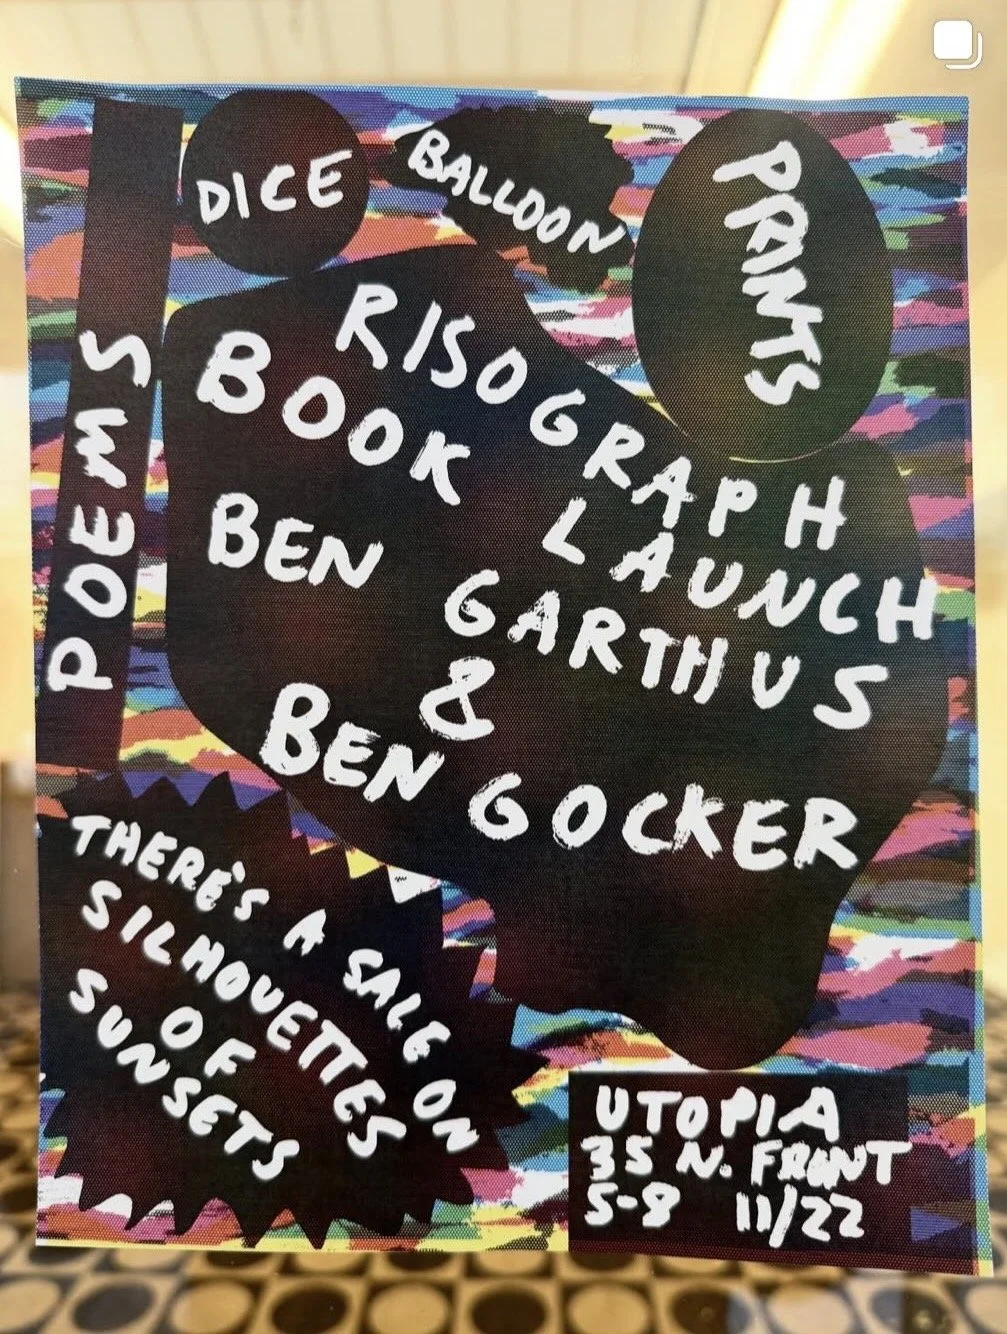 DICE
BALLOON
PRINTS
POEMS
RISOGRAPH
BOOK LAUNCH
BEN GARTHUS
&
BEN GOCKER
THERE'S A SALE ON
SILHOUETTES
OF
SUNSETS
UTOPIA
35 N. FRONT
5-8 11/22